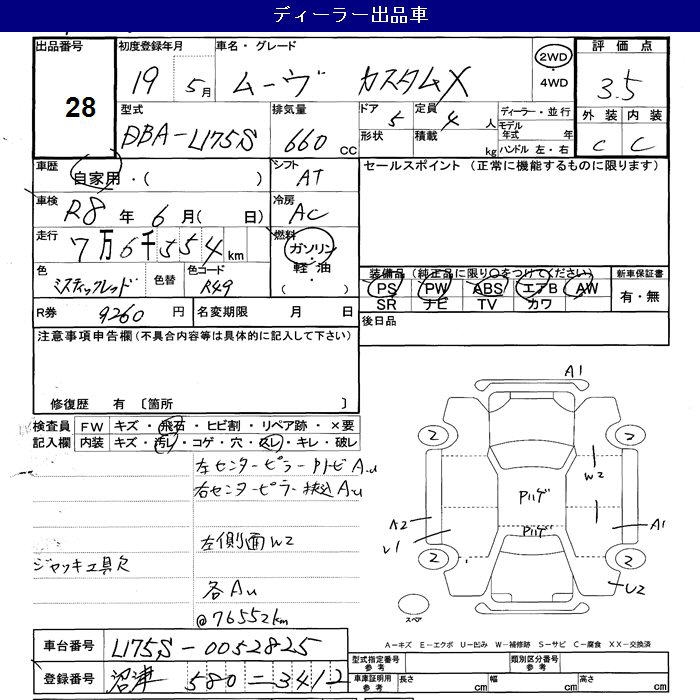 ディーラー出品車
出品番号 28
初度登録年月 19 5月
車名・グレード ムーヴ カスタムX
2WD・4WD
評価点 3.5
外装 内装
C C
型式 DBA-L175S
排気量 660 CC
ドア 5
形状
定員 4 人
積載 kg
ディーラー・並行
モデル年式 年
ハンドル 左・右
車歴 自家用・( )
シフト AT
セールスポイント (正常に機能するものに限ります)
車検 R8年 6月( 日)
冷房 AC
走行 7万6千554km
燃料 ガソリン・軽油・( )
色 ミスティックレッド
色替
色コード R49
装備品(純正品に限り○をつけてください)
PS PW ABS エアB AW
SR ナビ TV カワ
新車保証書
有・無
R券 9260 円
名変期限 月 日
後日品
注意事項申告欄(不具合内容等は具体的に記入して下さい)
修復歴 有 〔箇所 〕
検査員記入欄
FW キズ・飛石・ヒビ割・リペア跡・×要
内装 キズ・汚レ・コゲ・穴・スレ・キレ・破レ
左センターピラー
右センターピラー
左側面W2
ジャッキ工具欠
@76552km
A1
2 2
W2
Pハゲ
Pハゲ
A2
A1
2 2
U2
スペア
A－キズ E－エクボ U－凹み W－補修跡 S－サビ C－腐食 XX－交換済
車台番号 L175S-0052825
登録番号 沼津 580 = 3412
型式指定番号 参考
類別区分番号 参考
車庫証明用 参考
長さ cm
幅 cm
高さ cm